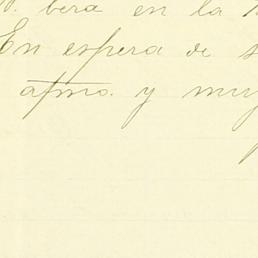 bera en la
En espera de s
afmo. y muy